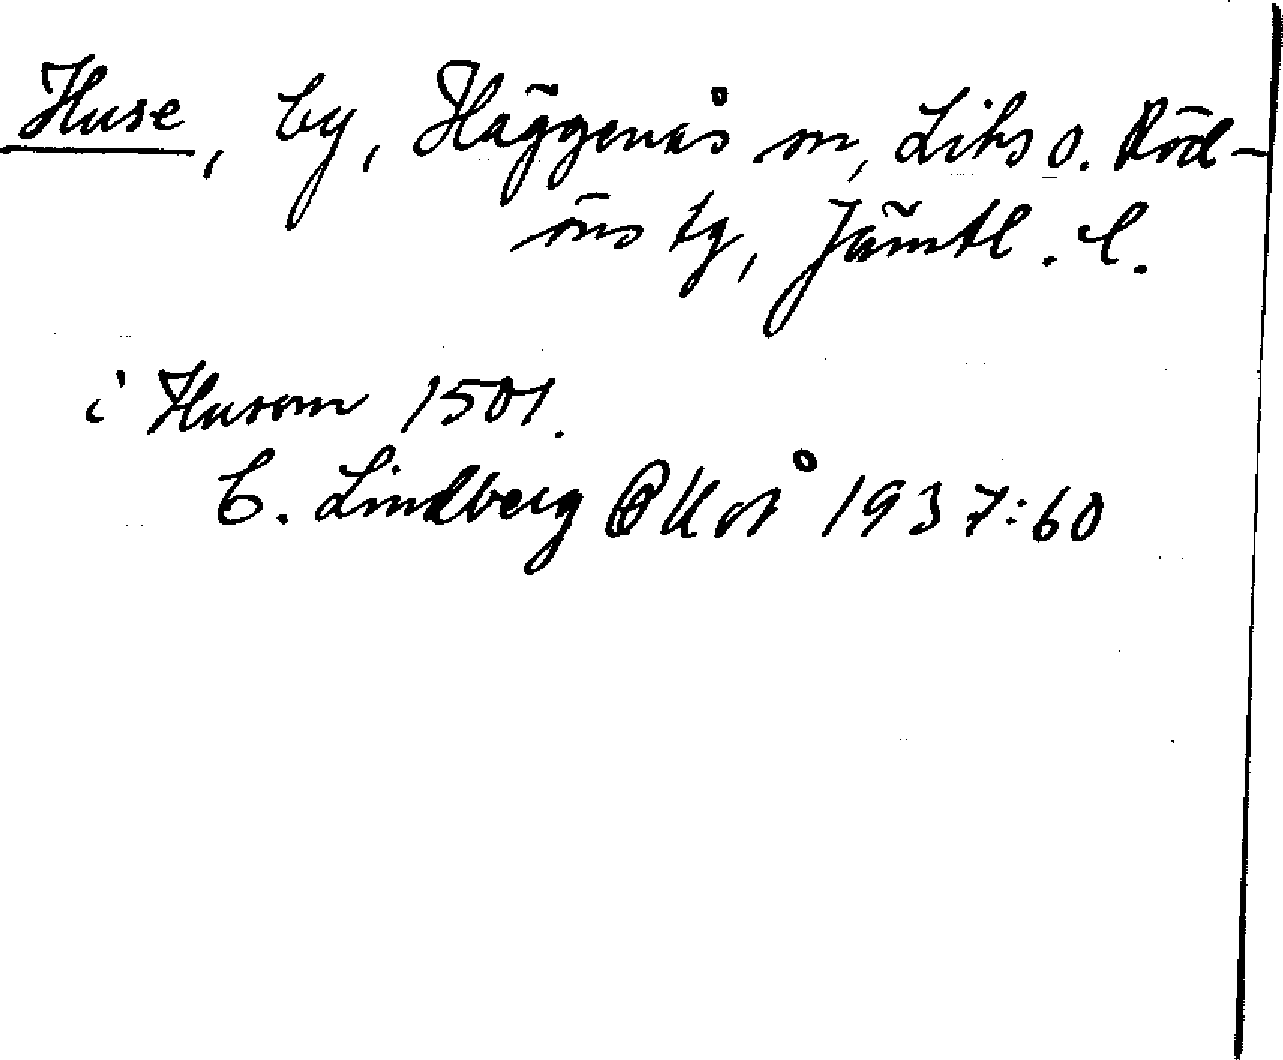 Huse, by, Häggenås sn, Lits o. Röd-
öns tg, Jämtl. l.
i Husom 1501.
C. Lindberg 1937:60